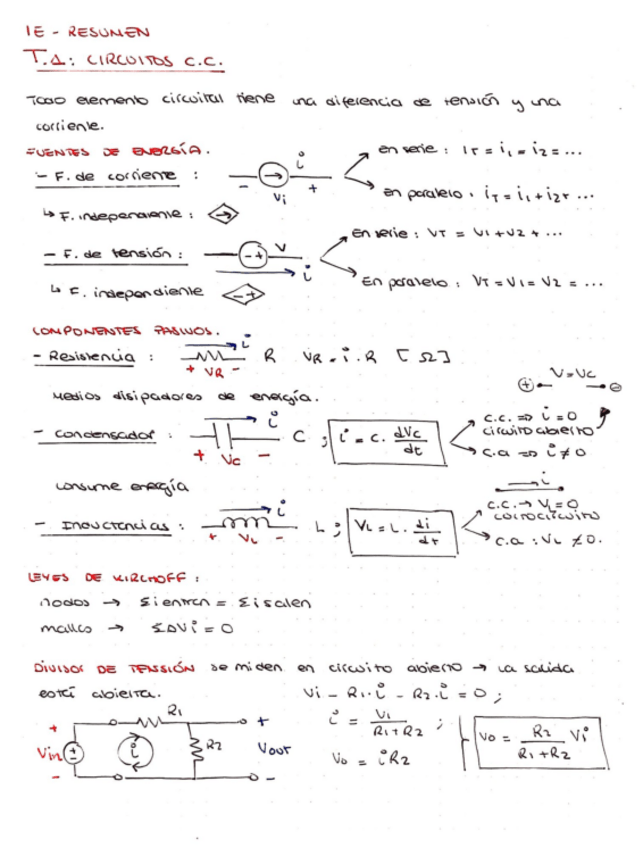 IE - RESUMEN
T.1: CIRCUITOS C.C.
Todo elemento circuital tiene una diferencia de tensión y una
corriente.
FUENTES DE ENERGÍA.
- F. de corriente : - → + i Vi en serie : IT = i1 = i2 = ...
en paralelo . iT = i1 + i2 + ...
↳ F. independiente :
- F. de tensión : - + V i En serie : VT = V1 + V2 + ...
En paralelo : VT = V1 = V2 = ...
↳ F. independiente - +
COMPONENTES PASIVOS.
- Resistencia : i + VR - R VR = i · R [Ω]
Medios disipadores de energía.
V = Vc
- Condensador : i + Vc - C ; i = C. dVc/dt
c.c. ⇒ i = 0
circuito abierto
c.a ⇒ i ≠ 0
consume energía
- Inductancias : i + VL - L ; VL = L. di/dt
i
c.c. → VL = 0
cortocircuito
c.a : VL ≠ 0.
LEYES DE KIRCHOFF :
nodos → Σientren = Σisalen
mallas → ΣΔVi = 0
DIVISOR DE TENSIÓN se miden en circuito abierto → La salida
está abierta.
Vi - R1·i - R2·i = 0 ;
i = Vi/R1+R2 ;
Vo = iR2
Vo = R2/R1+R2 Vi
+ Vin - i R1 R2 + Vout -